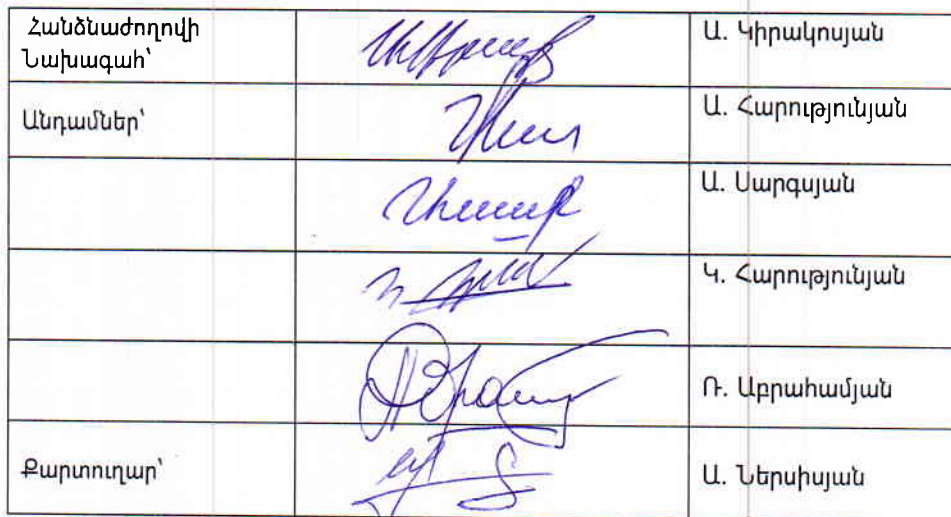 Հանձնաժողովի
Նախագահ՝
Ա. Կիրակոսյան
Անդամներ՝
Ա. Հարությունյան
Ա. Սարգսյան
Կ. Հարությունյան
Ռ. Աբրահամյան
Քարտուղար՝
Ա. Ներսիսյան